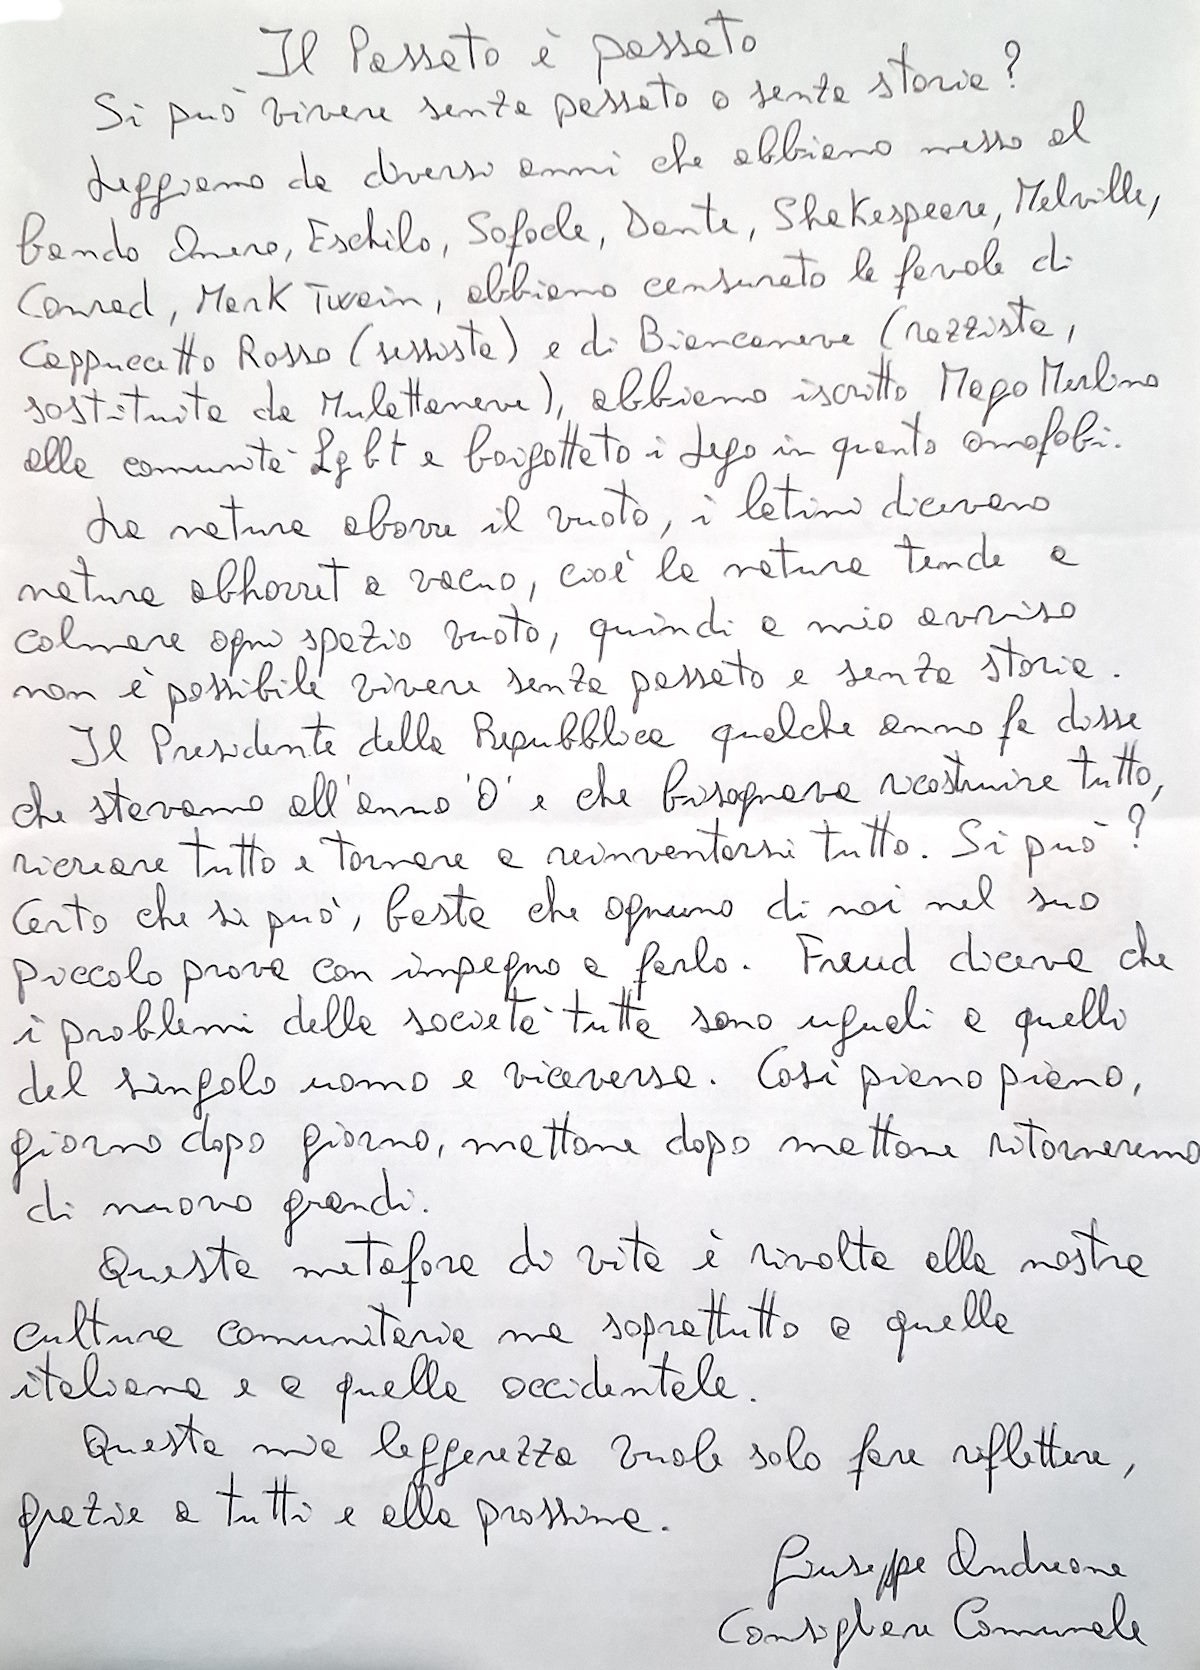 Il Passato è passato
Si può vivere senza passato o senza storia?
Leggiamo da diversi anni che abbiamo messo al
bando Omero, Eschilo, Sofocle, Dante, Shakespeare, Melville,
Conrad, Mark Twain, abbiamo censurato le favole di
Cappuccetto Rosso (sessista) e di Biancaneve (razzista,
sostituita da Mulattaneve), abbiamo iscritto Mago Merlino
alla comunità Lgbt e boigottato i Lego in quanto omofobi.
La natura aborre il vuoto, i latini dicevano
natura abhorret a vacuo, cioè la natura tende a
colmare ogni spazio vuoto, quindi a mio avviso
non è possibile vivere senza passato e senza storia.
Il Presidente della Repubblica qualche anno fa disse
che stavamo all'anno '0' e che bisognava ricostruire tutto,
ricreare tutto e tornare a reinventarsi tutto. Si può?
Certo che si può, basta che ognuno di noi nel suo
piccolo prova con impegno a farlo. Freud diceva che
i problemi della società tutta sono uguali a quelli
del singolo uomo e viceversa. Così piano piano,
giorno dopo giorno, mattone dopo mattone ritorneremo
di nuovo grandi.
Questa metafora di vita è rivolta alla nostra
cultura comunitaria ma soprattutto a quella
italiana e a quella occidentale.
Questa mia leggerezza vuole solo fare riflettere,
grazie a tutti e alla prossima.
Giuseppe Andreana
Consigliere Comunale